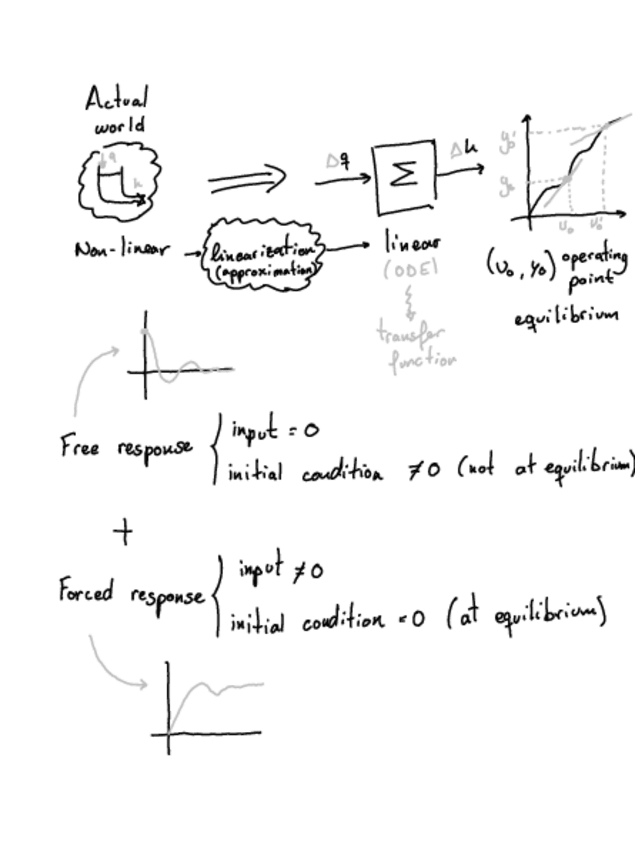 Actual
world
q
h
Δq
Σ
Δh
y₀'
y₀
u₀
u₀'
Non-linear
linearization
(approximation)
linear
(ODE)
transfer
function
(u₀, y₀) operating
point
equilibrium
Free response
input = 0
initial condition ≠0 (not at equilibrium)
+
Forced response
input ≠0
initial condition = 0 (at equilibrium)